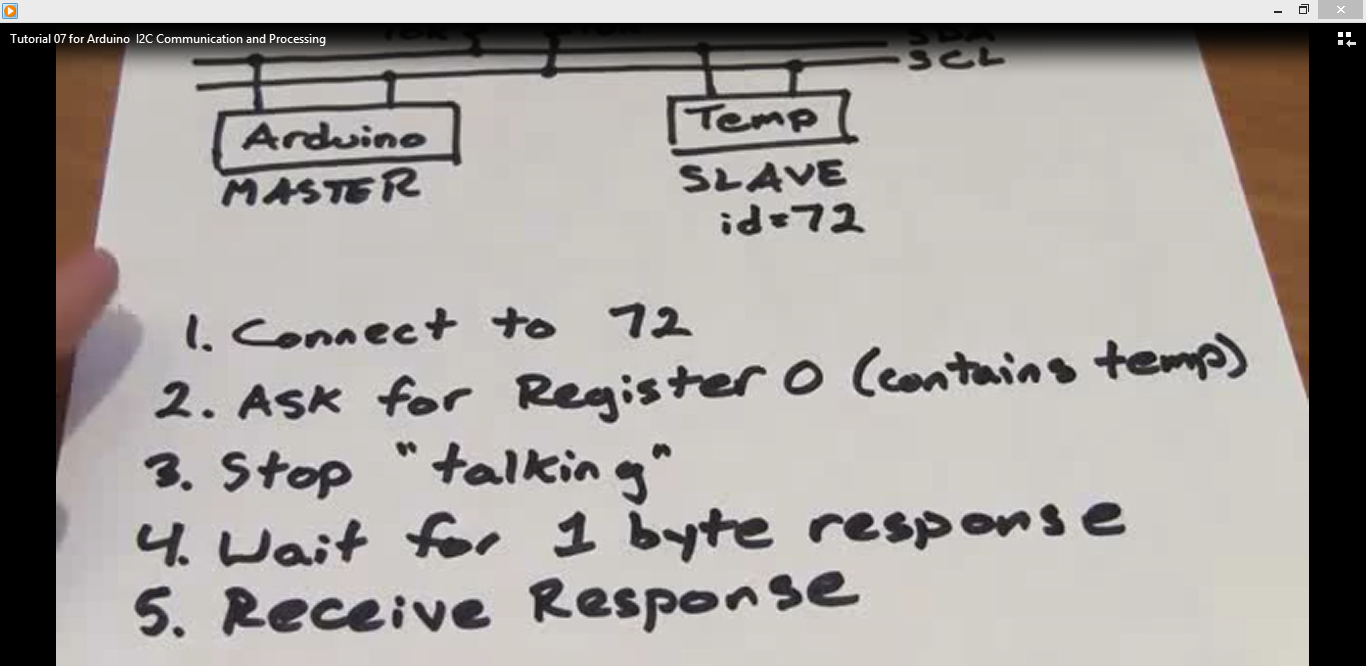 Tutorial 07 for Arduino I2C Communication and Processing
SCL
Arduino
Temp
MASTER
SLAVE
id=72
1. Connect to 72
2. Ask for Register 0 (contains temp)
3. Stop "talking"
4. Wait for 1 byte response
5. Receive Response